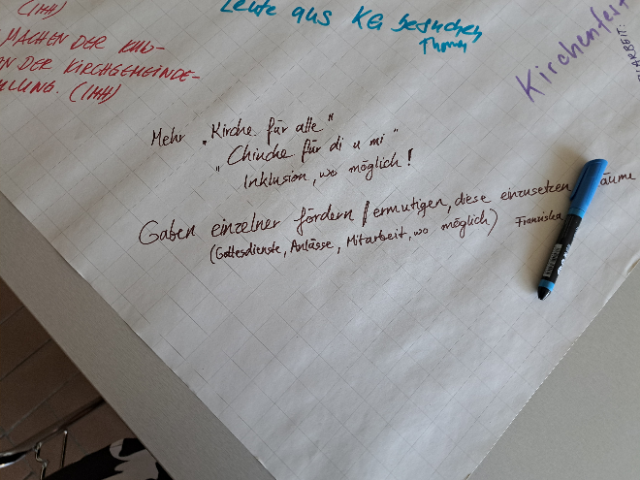 (IHH)
MACHEN DER KUL-
N DER KIRCHGEMEINDE-
MLUNG. (IHH)
Leute aus KG besuchen
Thomas
Kirchenfest
Mehr „Kirche für alle"
„Chirche für di u mi"
Inklusion, wo möglich!
Gaben einzelner fördern / ermutigen, diese einzusetzen
äume
(Gottesdienste, Anlässe, Mitarbeit, wo möglich) Franziska